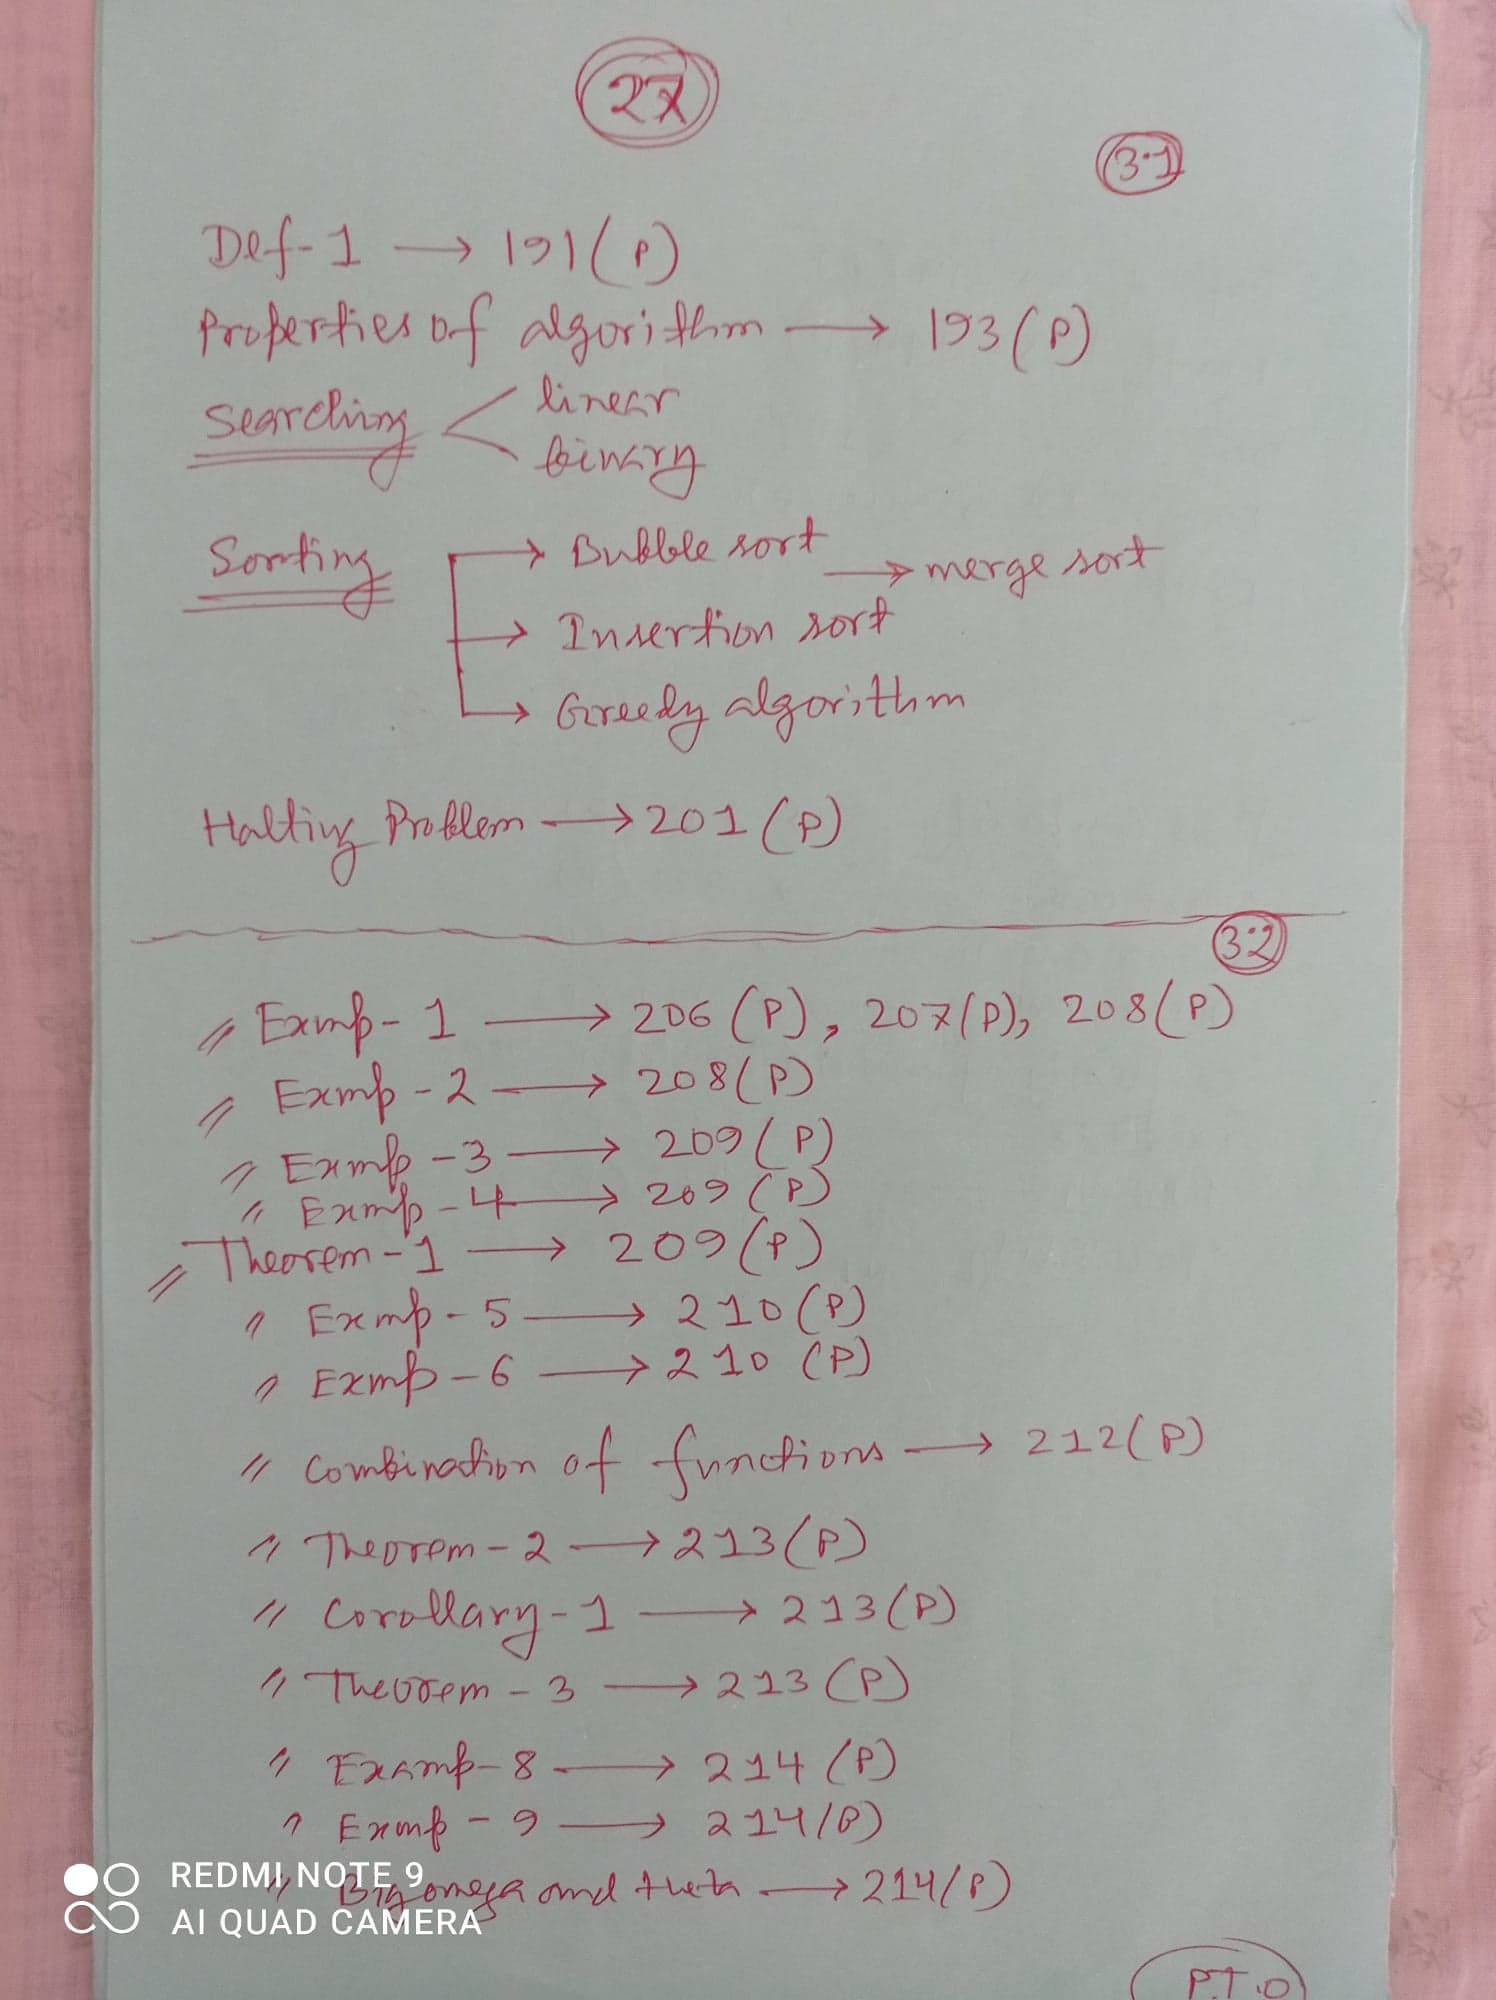 27
3.1
Def-1 → 191(P)
Properties of algorithm → 193(P)
Searching < linear
binary
Sorting → Bubble sort → merge sort
→ Insertion sort
→ Greedy algorithm
Halting Problem → 201(P)
3.2
〃 Exmp-1 → 206(P), 207(P), 208(P)
〃 Exmp-2 → 208(P)
〃 Exmp-3 → 209(P)
〃 Exmp-4 → 209(P)
〃 Theorem-1 → 209(P)
〃 Exmp-5 → 210(P)
〃 Exmp-6 → 210(P)
〃 Combination of functions → 212(P)
〃 Theorem-2 → 213(P)
〃 Corollary-1 → 213(P)
〃 Theorem-3 → 213(P)
〃 Examp-8 → 214(P)
〃 Exmp-9 → 214(P)
〃 Big omega and theta → 214(P)
REDMI NOTE 9
AI QUAD CAMERA
P.T.O